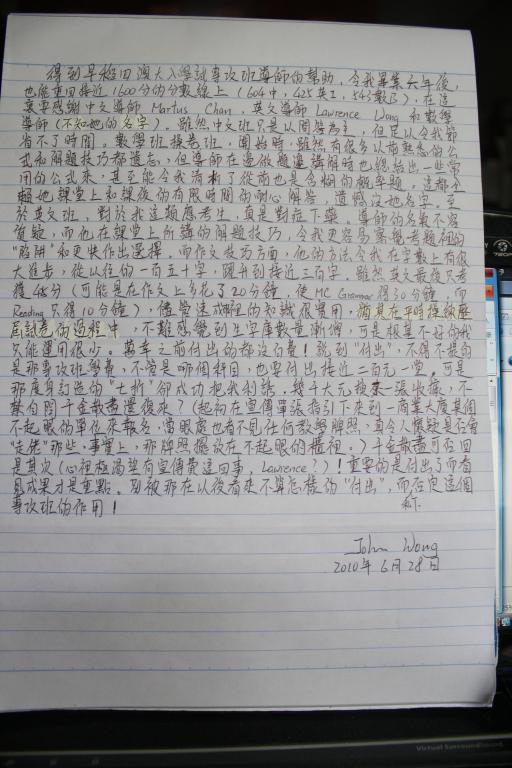 得到早稻田澳大入學試專攻班導師的幫助，令我畢業六年後，
也能重回接近1600分的分數線上（604中，625英，343數），在這
裏要感謝中文導師Martus Chan，英文導師Lawrence Wong和數學
導師（不知她的名字）。雖然中文班只是以問答為主，但足以令我節
省不了時間。數學班操卷班，開始時，雖然有很多以前熟悉的公
式和解題技巧都遺忘，但導師在邊做題邊講解時也總結出一些常
用的公式來，甚至能令我清晰了從前也是含糊的概率題。這都
賴她課堂上和課後的有限時間的耐心解答，遺憾沒她名字。至
於英文班，對於我這類應考生，真是對症下藥。導師的名氣不容
質疑，而他在課堂上所講的解題技巧，令我更容易察覺考題裡的
"陷阱"和更快作出選擇，而作文技巧方面，他的方法令我在字數上有很
大進步，從以往的一百五十字，躍升到接近三百字。雖然英文最後只考
獲 分（可能是在作文上多花了20分鐘，使MC Grammar得30分鐘，而
Reading只得10分鐘），儘管速成 的知識很實用， 在平時操練歷
屆試卷的過程中，不難感覺到生字庫數量漸增，可是根基不好的我
只能運用很少。萬幸之前付出的都沒白費！說到"付出"，不得不提的
是那專攻班學費，不管是哪個科目，也要付出接近二百元一堂。可是
那度身訂造的"七折"卻成功把我利誘。幾千大元換來一張收據，不
禁自問千金散盡還復來？（起初在宣傳單張指引下來到一商業大廈某個
不起眼的單位來報名，當眼處也看不見任何教學牌照，真令人懷疑是否會
"走佬"那些，事實上，那牌照擺放在不起眼的櫃裡。）千金散盡可否回
是其次（心裡極渴望有宣傳費這回事，Lawrence？）！重要的是付出了而看
見成果才是重點。別被那在以後看來不算怎樣的"付出"，而否定這個
專攻班的作用！
John Wong
2010年6月28日
Virtual Surround